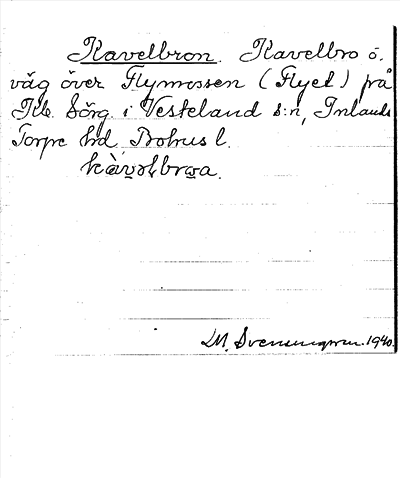 Kavelbron. Kavelbro o.
väg över Flymossen (Flyet) på
Kb. Sörg. i Vesteland s:n, Inlands
Torpe hd, Bohus l.
1940.